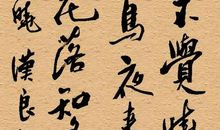 不覺曉
鳥夜來
花落知多
曉漢良